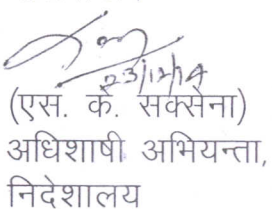 23/12/14
(एस. के. सक्सेना)
अधिशाषी अभियन्ता,
निदेशालय